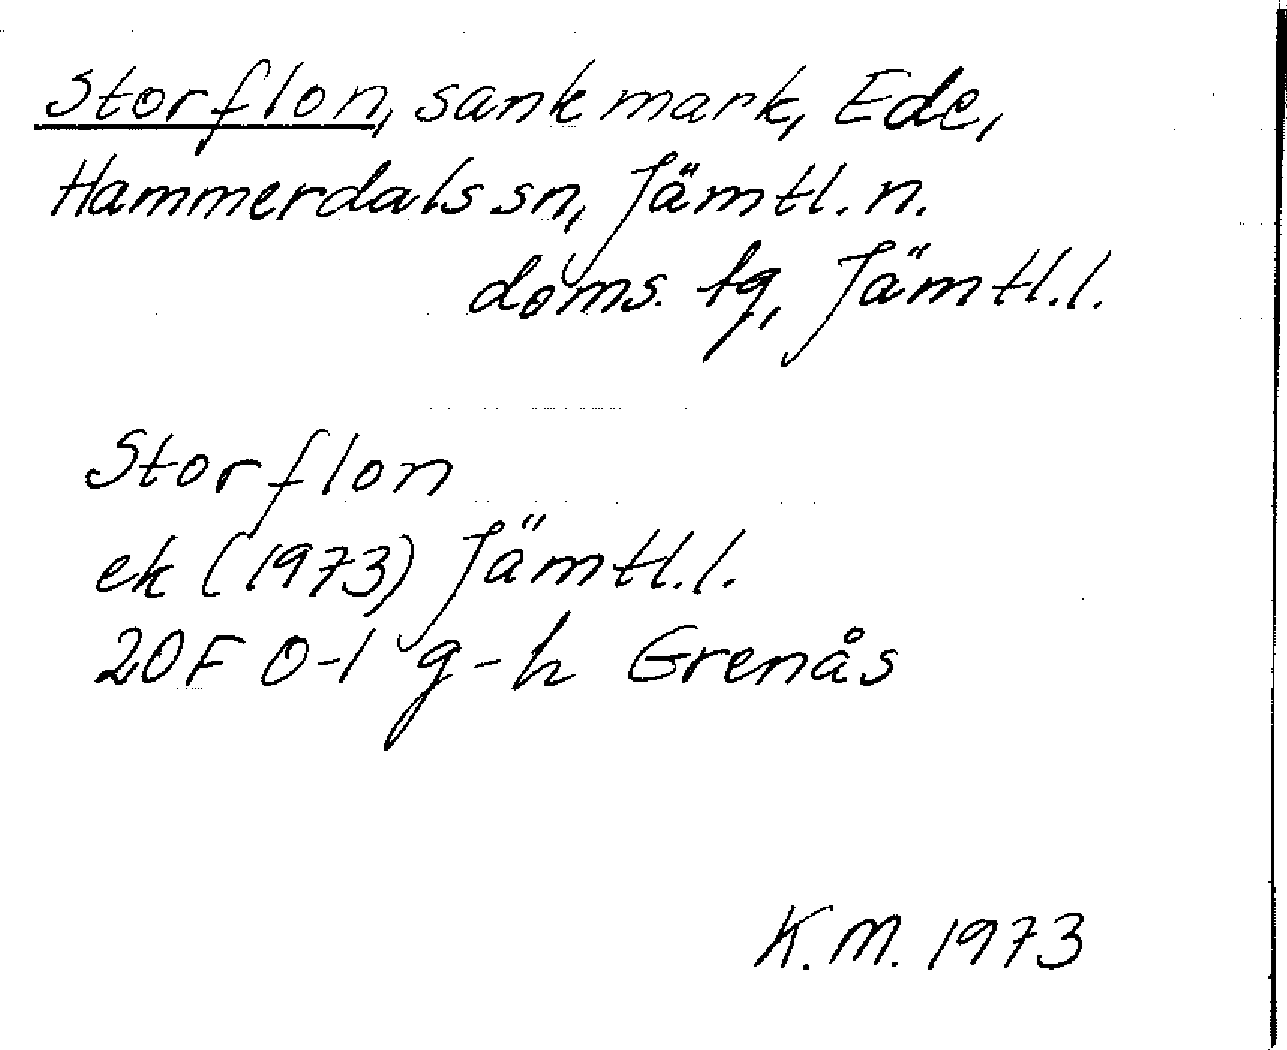 Storflon, sank mark, Ede,
Hammerdals sn, Jämtl. n.
doms. tg, Jämtl. l.
Storflon
ek (1973) Jämtl. l.
20F 0-1 g-h Grenås
K.M. 1973